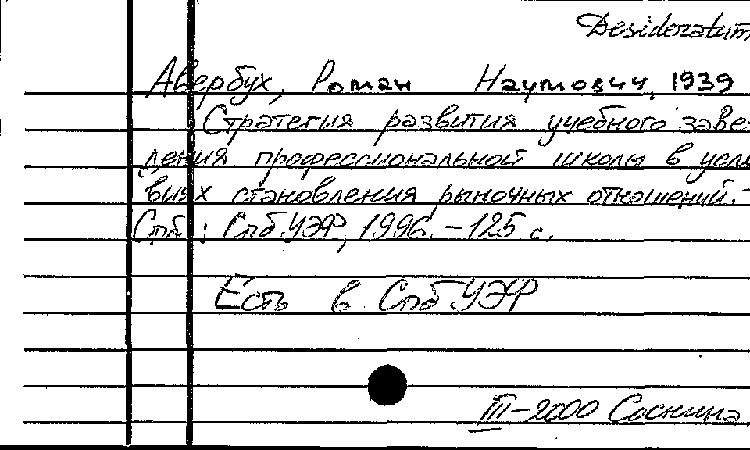 Desideratum
Авербух, Роман Наумович, 1939
Стратегия развития учебного заве-
дения профессиональной школы в усло-
виях становления рыночных отношений. -
Спб.: СпбУЭФ, 1996. - 125 с.
Есть в СпбУЭФ
III-2000 Соснина